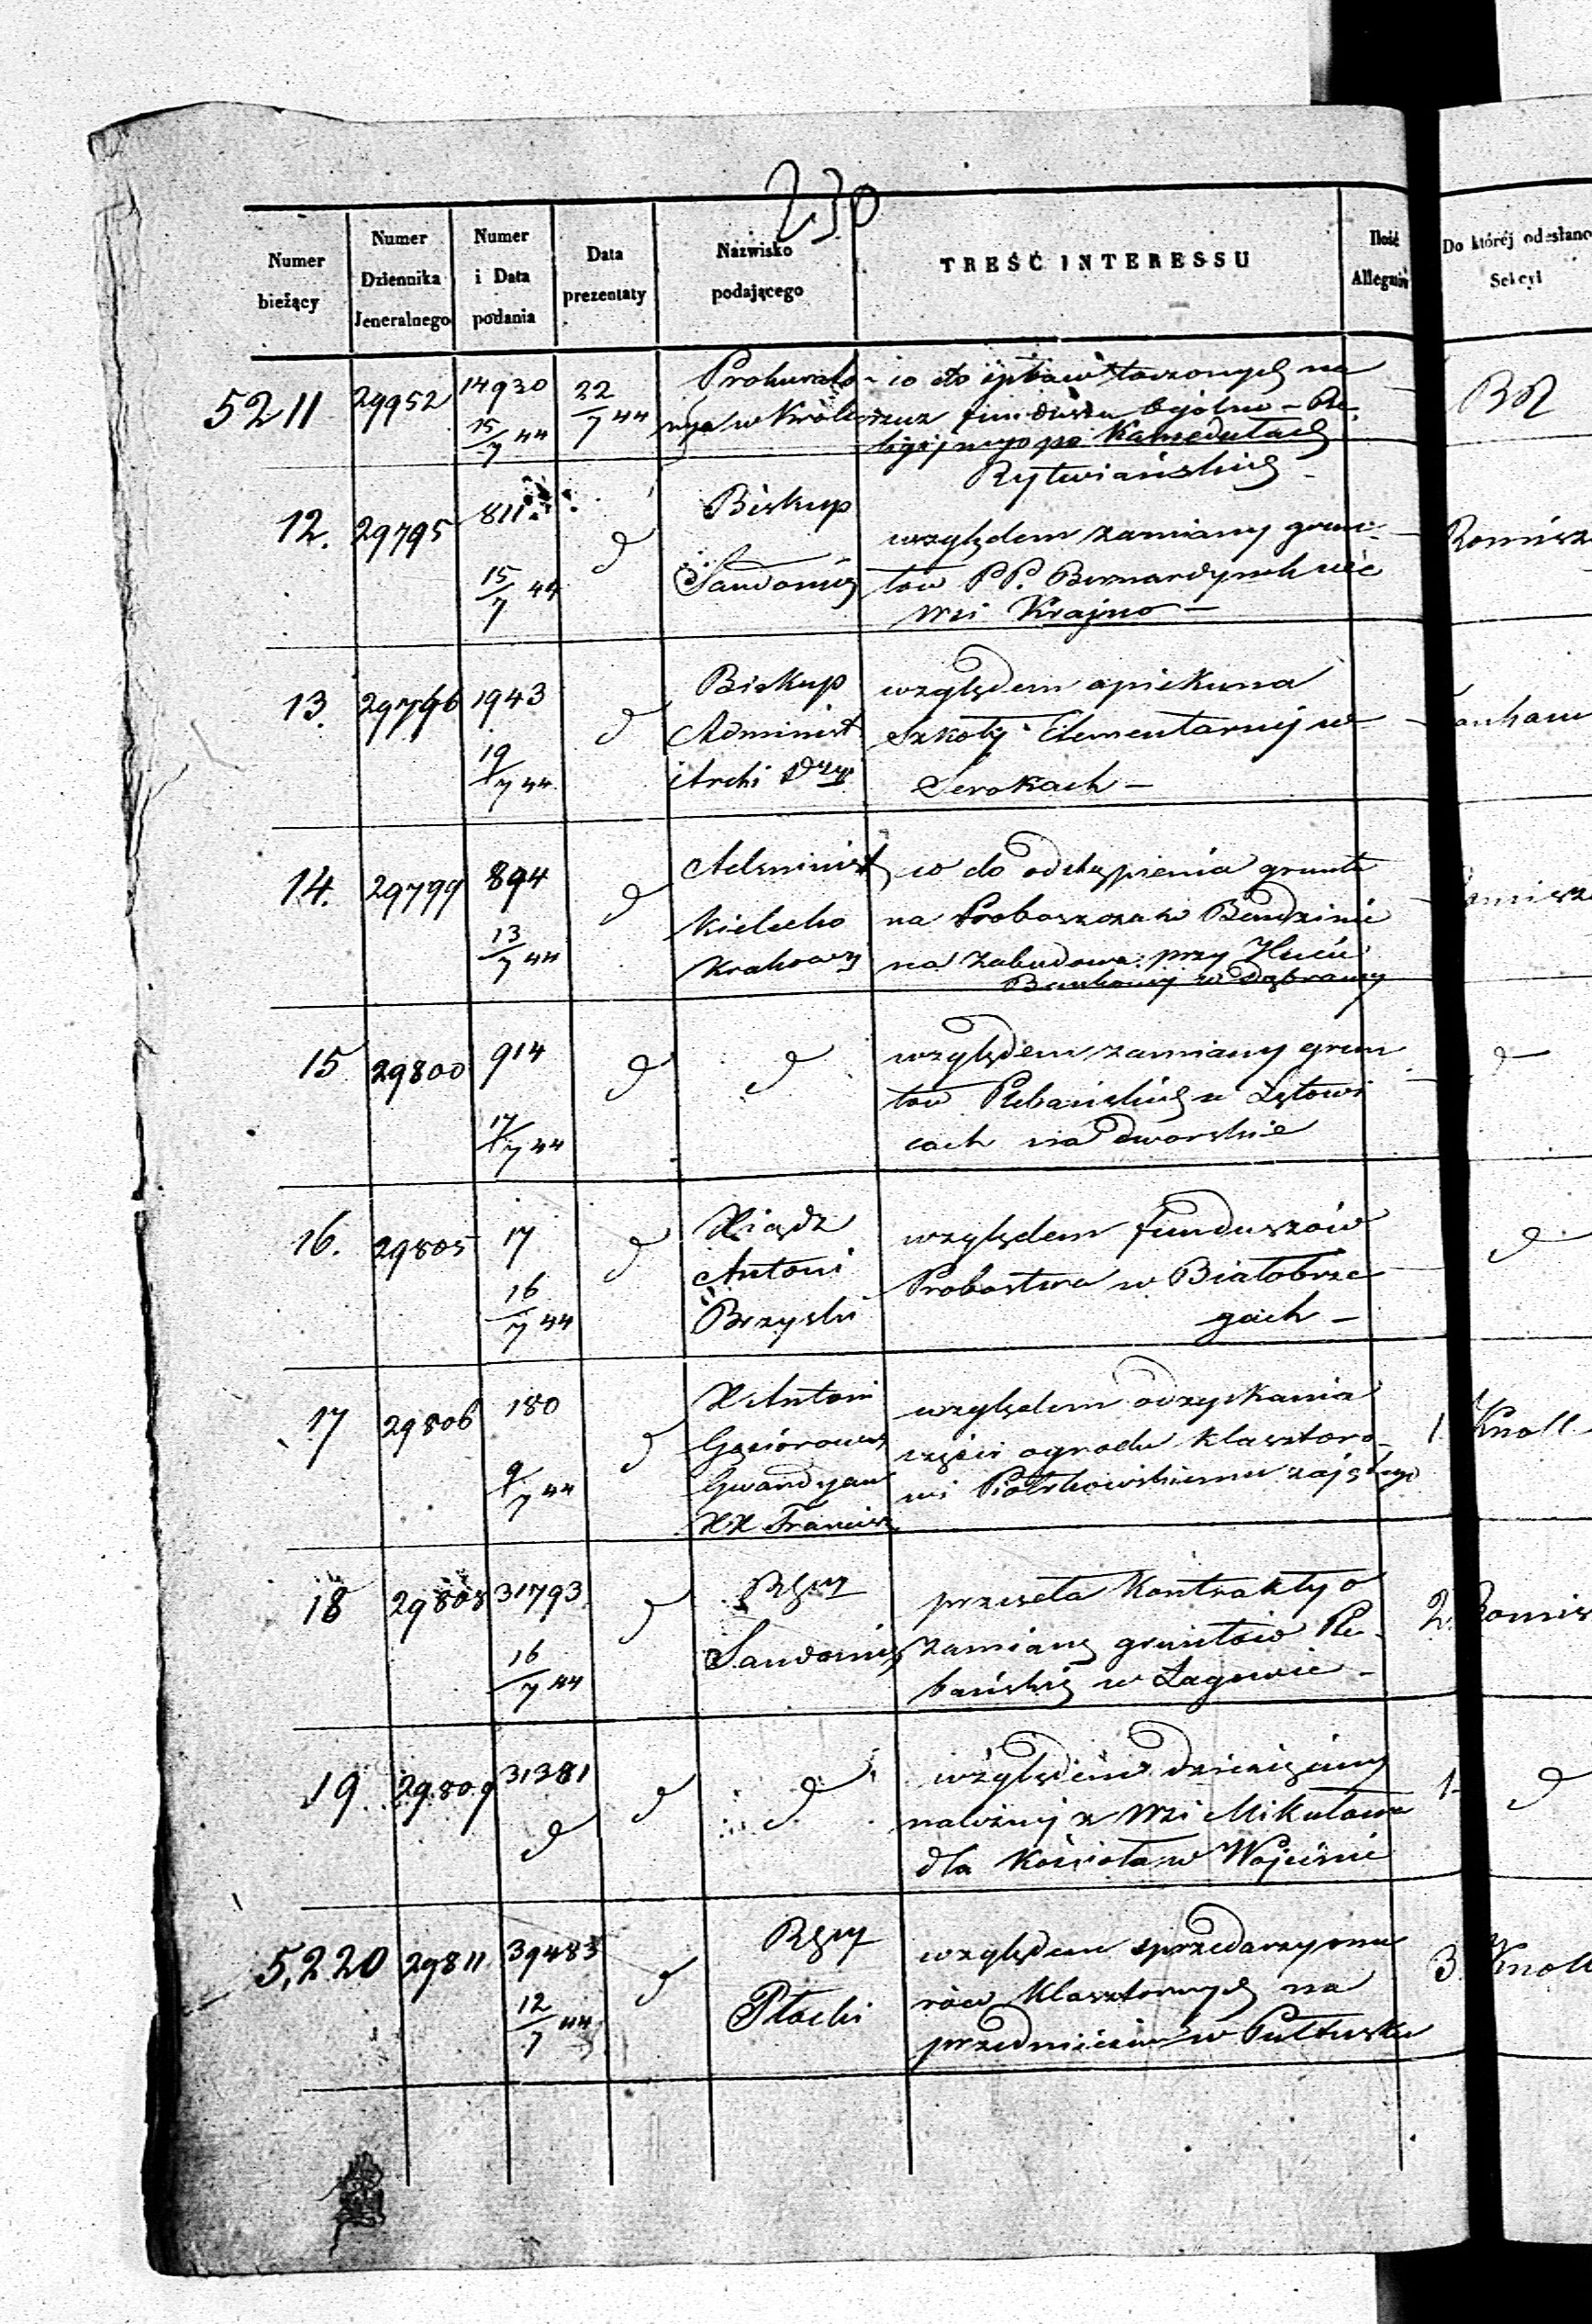 230
Numer bieżący
Numer Dziennika Jeneralnego
Numer i Data podania
Data prezentaty
Nazwisko podającego
TREŚĆ INTERESSU
Ilość Allegatów
Do której odesłano Sekcyi
5211 29952 14930 15/7 44 22/7 44
Prokurato-
rya w Króle
co do spraw toczonych na
rzecz funduszu ogólno-Re-
ligijnego po Kamedułach
Rytwiańskich
BR
12. 29795 811 15/7 44 d
Biskup
Sandomig
względem zamiany grun-
tów PP. Bernardynek we
wsi Krajno —
13. 29796 1943 19/7 44 d
Biskup
Administ
Archi Dyz
względem opiekuna
Szkoły Elementarnej w
Serokach —
14. 29799 894 13/7 44 d
Administ
Kielecko
Krakows
co do odstąpienia gruntu
na Proboszcza w Bendzinie
na zabudowa: przy Hucie
Bankowej w Dąbrowy
15 29800 914 17/7 44 d d
względem zamiany grun
tów Plebańskich w Łętowi
cach na dworskie
d
16. 29805 17 16/7 44 d
Xiądz
Antoni
Brzyski
względem funduszów
Probostwa w Białobrze
gach —
d
17 29806 180 9/7 44 d
X Antoni
Gąsiorows
Gwardyan
XX Francisz
względem odzyskania
części ogrodu klasztoro-
wi Piotrkowskiemu zajętego
1 Knoll
18 29808 31793 16/7 44 d
Rząd
Sandomig
przeseła Kontrakty o
zamianę gruntów Ple-
bańskich w Łagowie —
2
19 29809 31381 d d d
względem dziesięciny
należnej z wsi Mikułowa
dla Kościoła w Wojcinie
1 d
5,220 29811 39483 12/7 44 d
Rząd
Płocki
względem sprzedarzy mu
rów klasztornych na
przedmieściu w Pułtusku
3 Knoll